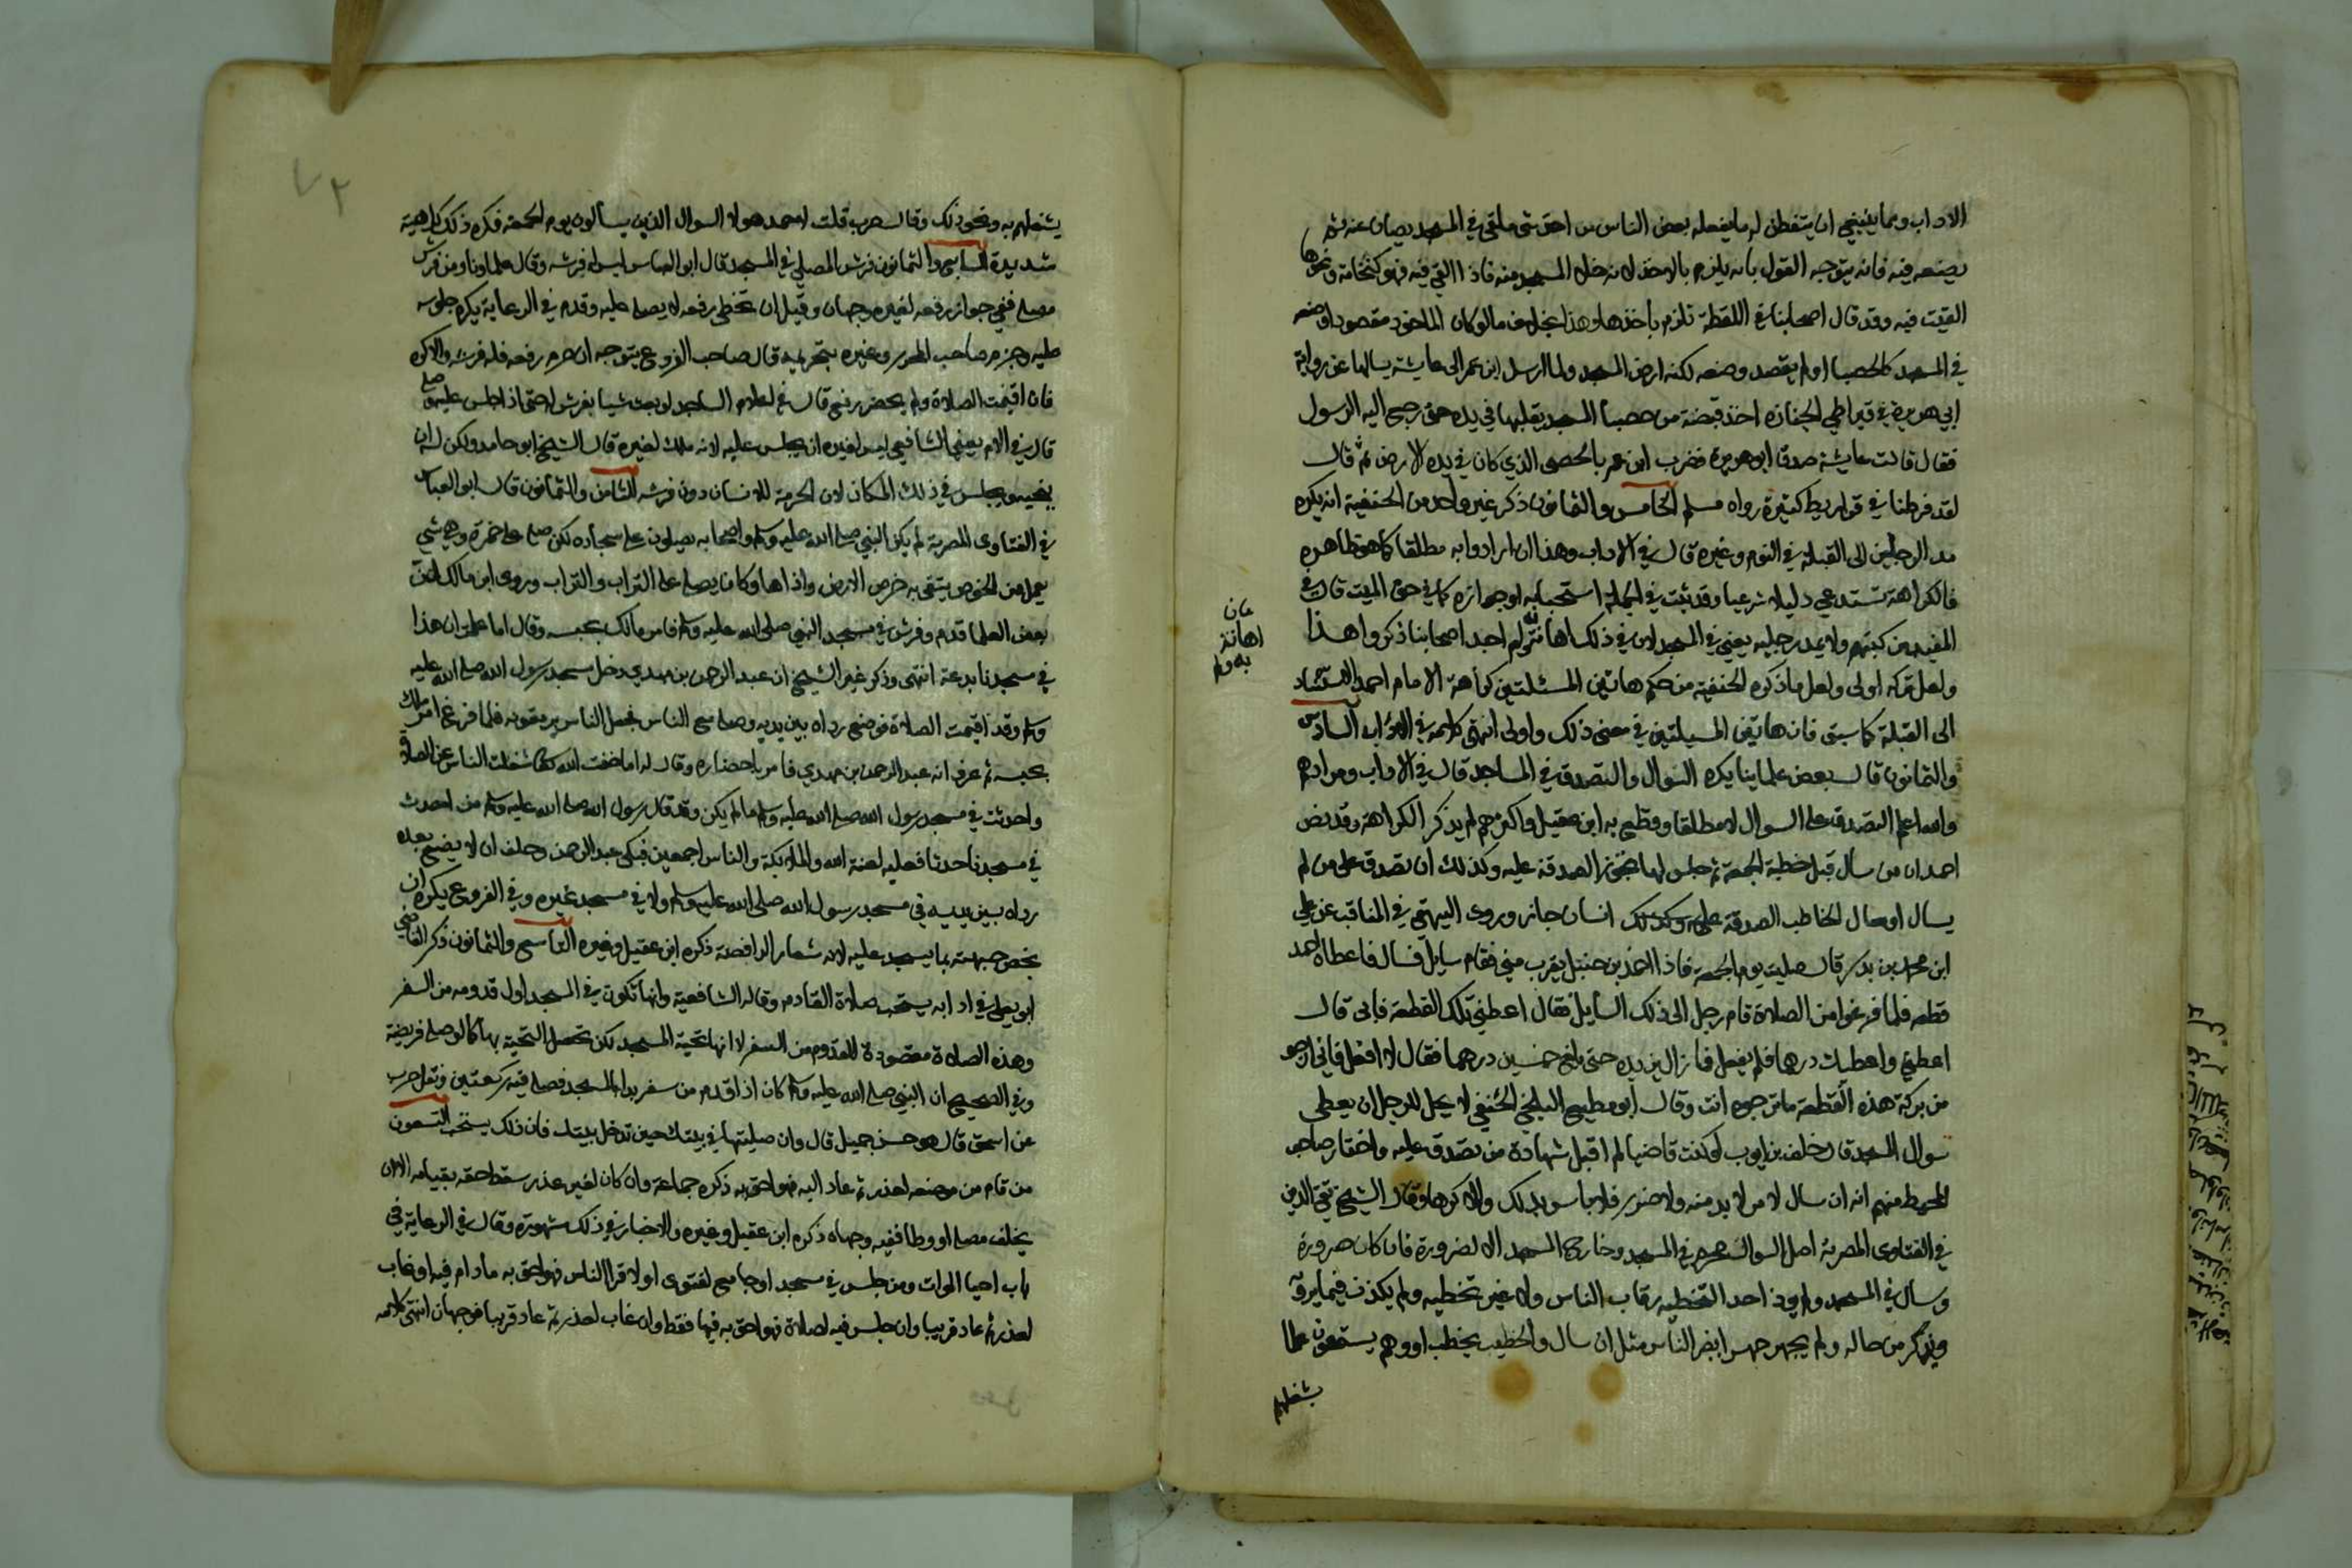 الاداب ومما ينبغي ان يتفطن له ما يفعله بعض الناس من اخذ شي ملقى في المسجد يصان عنه ثم
يضعه فيه فانه يتوجه القول بانه يلزم بالاخذ لانه خلا المسجد منه فاذا القي فيه فهو كنخامة ونحوها
القيت فيه وقد قال اصحابنا في اللقطة تلزم باخذها وهذا بخلاف ما لو كان الماخوذ مقصودا وضعه
في المسجد كالحصبا او لم يقصد وضعه لكنه ارض المسجد ولما ارسل ابن عمر الى عايشة يسالها عن رواية
ابي هريرة في قيراطي الجنازة اخذ قبضة من حصبا المسجد يقلبها في يده حتى رجع اليه الرسول
فقال قالت عايشة صدق ابو هريرة فضرب ابن عمر بالحصى الذي كان في يده الارض ثم قال
لقد فرطنا في قراريط كثيرة رواه مسلم الخامس والثمانون ذكر غير واحد من الحنفية انه يكره
مد الرجلين الى القبلة في النوم وغيره قال في الاداب وهذا ان ارادوا به مطلقا كما هو ظاهره
فالكراهة تستدعي دليلا شرعيا وقد ثبت في الجملة استحبابه او جوازه كما في حق الميت قال في
المفيد من كتبهم ولا يمد رجليه يعني في المسجد لان في ذلك اهانة به ولم احد اصحابنا ذكروا هذا
ولعل تركه اولى ولعل ما ذكره الحنفية من حكم هاتين المسئلتين كراهة الامام احمد الاستناد
الى القبلة كما سبق فان هاتين المسيلتين في معنى ذلك واولى انتهى كلامه في الاداب السادس
والثمانون قال بعض علماينا يكره السوال والتصدق في المساجد قال في الاداب ومرادهم
والله اعلم التصدق على السوال لا مطلقا وقطع به ابن عقيل واكثرهم لم يذكر الكراهة وقد نص
احمد ان من سال قبل خطبة الجمعة ثم جلس لها تجوز الصدقة عليه وكذلك ان تصدق على من لم
يسال او سال الخاطب الصدقة على انسان جاز وروى البيهقي في المناقب عن علي
ابن محمد بن بدر قال صليت يوم الجمعة فاذا احمد بن حنبل يقرب مني فقام سايل فسال فاعطاه احمد
قطعة فلما فرغوا من الصلاة قام رجل الى ذلك السايل فقال اعطني تلك القطعة فابى قال
اعطني واعطيك درهما فلم يفعل فما زال يزيده حتى بلغ خمسين درهما فقال لا افعل فاني ارجو
من بركة هذه القطعة ما ترجوه انت وقال ابو مطيع البلخي الحنفي لا يحل للرجل ان يعطي
سوال المسجد قال خلف بن ايوب لو كنت قاضيا لم اقبل شهادة من تصدق عليه واختار صاحب
المحيط منهم انه ان سال لامر لا بد منه ولا ضرر فلا باس بذلك والا كرها وقال الشيخ تقي الدين
في الفتاوى المصرية اصل السوال محرم في المسجد وخارج المسجد الا لضرورة فان كان ضرورة
وسال في المسجد ولم يوذ احدا لتخطيه رقاب الناس ولا غير تخطيه ولم يكذب فيما يرويه
ويذكر من حاله ولم يجهر جهرا يضر الناس مثل ان سال والخطيب يخطب او وهم يستمعون علما
يشغلهم
اهانة
به ولم
٧٢
يشغلهم به ونحو ذلك وقال حرب قلت لاحمد هولا السوال الذين يسالون يوم الجمعة فكره ذلك كراهية
شديدة السابع والثمانون فرش المصلى في المسجد قال ابو العباس ليس له فرشه وقال علماونا ومن فرش
مصلى ففي جواز رفعه لغيره وجهان وقيل ان تخطى رفعه له يصلى عليه وقدم في الرعاية يكره جلوسه
عليه وجزم صاحب المحرر وغيره بتحريمه قال صاحب الفروع يتوجه ان حرم رفعه فله فرشه والا كره
فان اقيمت الصلاة ولم يحضر رفع قال في اعلام الساجد لو بعث شيا يفرش له حتى اذا جلس عليه
قال في الام يعني الشافعي ليس لغيره ان يجلس عليه لانه ملك لغيره قال الشيخ ابو حامد ولكن له ان
ينحيه ويجلس في ذلك المكان لان الحرمة للانسان دون فرشه الثامن والثمانون قال ابو العباس
في الفتاوى المصرية لم يكن النبي صلى الله عليه وسلم واصحابه يصلون على سجادة لكن صلى على خمرة وهي شي
يعمل من الخوص يتقى به حر الارض واذاها وكان يصلي على التراب والتراب وروى ابن مالك ان
بعض العلما قدم وفرش في مسجد النبي صلى الله عليه وسلم فامر مالك بحبسه وقال اما علمت ان هذا
في مسجدنا بدعة انتهى وذكر غير الشيخ ان عبد الرحمن بن مهدي دخل مسجد رسول الله صلى الله عليه
وسلم وقد اقيمت الصلاة فوضع رداه بين يديه وصلى مع الناس فجعل الناس يرمقونه فلما فرغ امر مالك
بحبسه ثم عرف انه عبد الرحمن بن مهدي فامر باحضاره وقال له اما خفت الله شغلت الناس عن الصلاة
واحدثت في مسجد رسول الله صلى الله عليه وسلم ما لم يكن وقد قال رسول الله صلى الله عليه وسلم من احدث
في مسجدنا حدثا فعليه لعنة الله والملايكة والناس اجمعين فبكى عبد الرحمن وحلف ان لا يضع بعده
رداه بين يديه في مسجد رسول الله صلى الله عليه وسلم ولا في مسجد غيره وفي الفروع يكره ان
يخص جبهته بما يسجد عليه لانه شعار الرافضة ذكره ابن عقيل وغيره التاسع والثمانون ذكر القاضي
ابو يعلى في ادابه يستحب صلاة القادم وقاله الشافعية وانها تكون في المسجد اول قدومه من السفر
وهذه الصلاة مقصودة للقدوم من السفر لا انها تحية المسجد لكن تحصل التحية بها كما لو صلى فريضة
وفي الصحيح ان النبي صلى الله عليه وسلم كان اذا قدم من سفر بدا بالمسجد فصلى فيه ركعتين ونقل حرب
عن اسحق قال هو حسن جميل قال وان صليتها في بيتك حين تدخل بيتك فان ذلك يستحب التسعون
من قام من موضعه لعذر ثم عاد اليه فهو احق به ذكره جماعة وان كان لغير عذر سقط حقه بقيامه الا ان
يخلف مصلى او وطا ففيه وجهان ذكره ابن عقيل وغيره والاخبار في ذلك شهيرة وقال في الرعاية في
باب احيا الموات ومن جلس في مسجد او جامع لفتوى او لاقرا الناس فهو احق به ما دام فيه او غاب
لعذر ثم عاد قريبا وان جلس فيه لصلاة فهو احق به فيها فقط وان غاب لعذر ثم عاد قريبا فوجهان انتهى كلامه